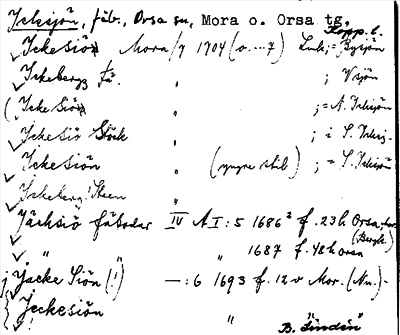 Ickesjön, fäb., Orsa sn, Mora o. Orsa tg,
Kopp. l.
Ickesiön Mora/7 1704 (o....7) Link; = Bysjön
Ickeberg fä. " ; Vsjön
(Icke Siön " ; = N. Ickesjön
Ickesiö Stöck " ; i S. Ickesj.
Ickesiön " (yngre stil) ; = S. Ickesjön
Ickeberg: Steen "
Jächsiö fäbodar IV A I : 5 1686² f. 23 h. Orsa, fas.
(Bergk.)
" " 1687 f. 48 h Orsa
j Jacke Siön (!) — : 6 1693 f. 12 v Mor. (Nn.) -
Jeckesiön "
B. Lindén